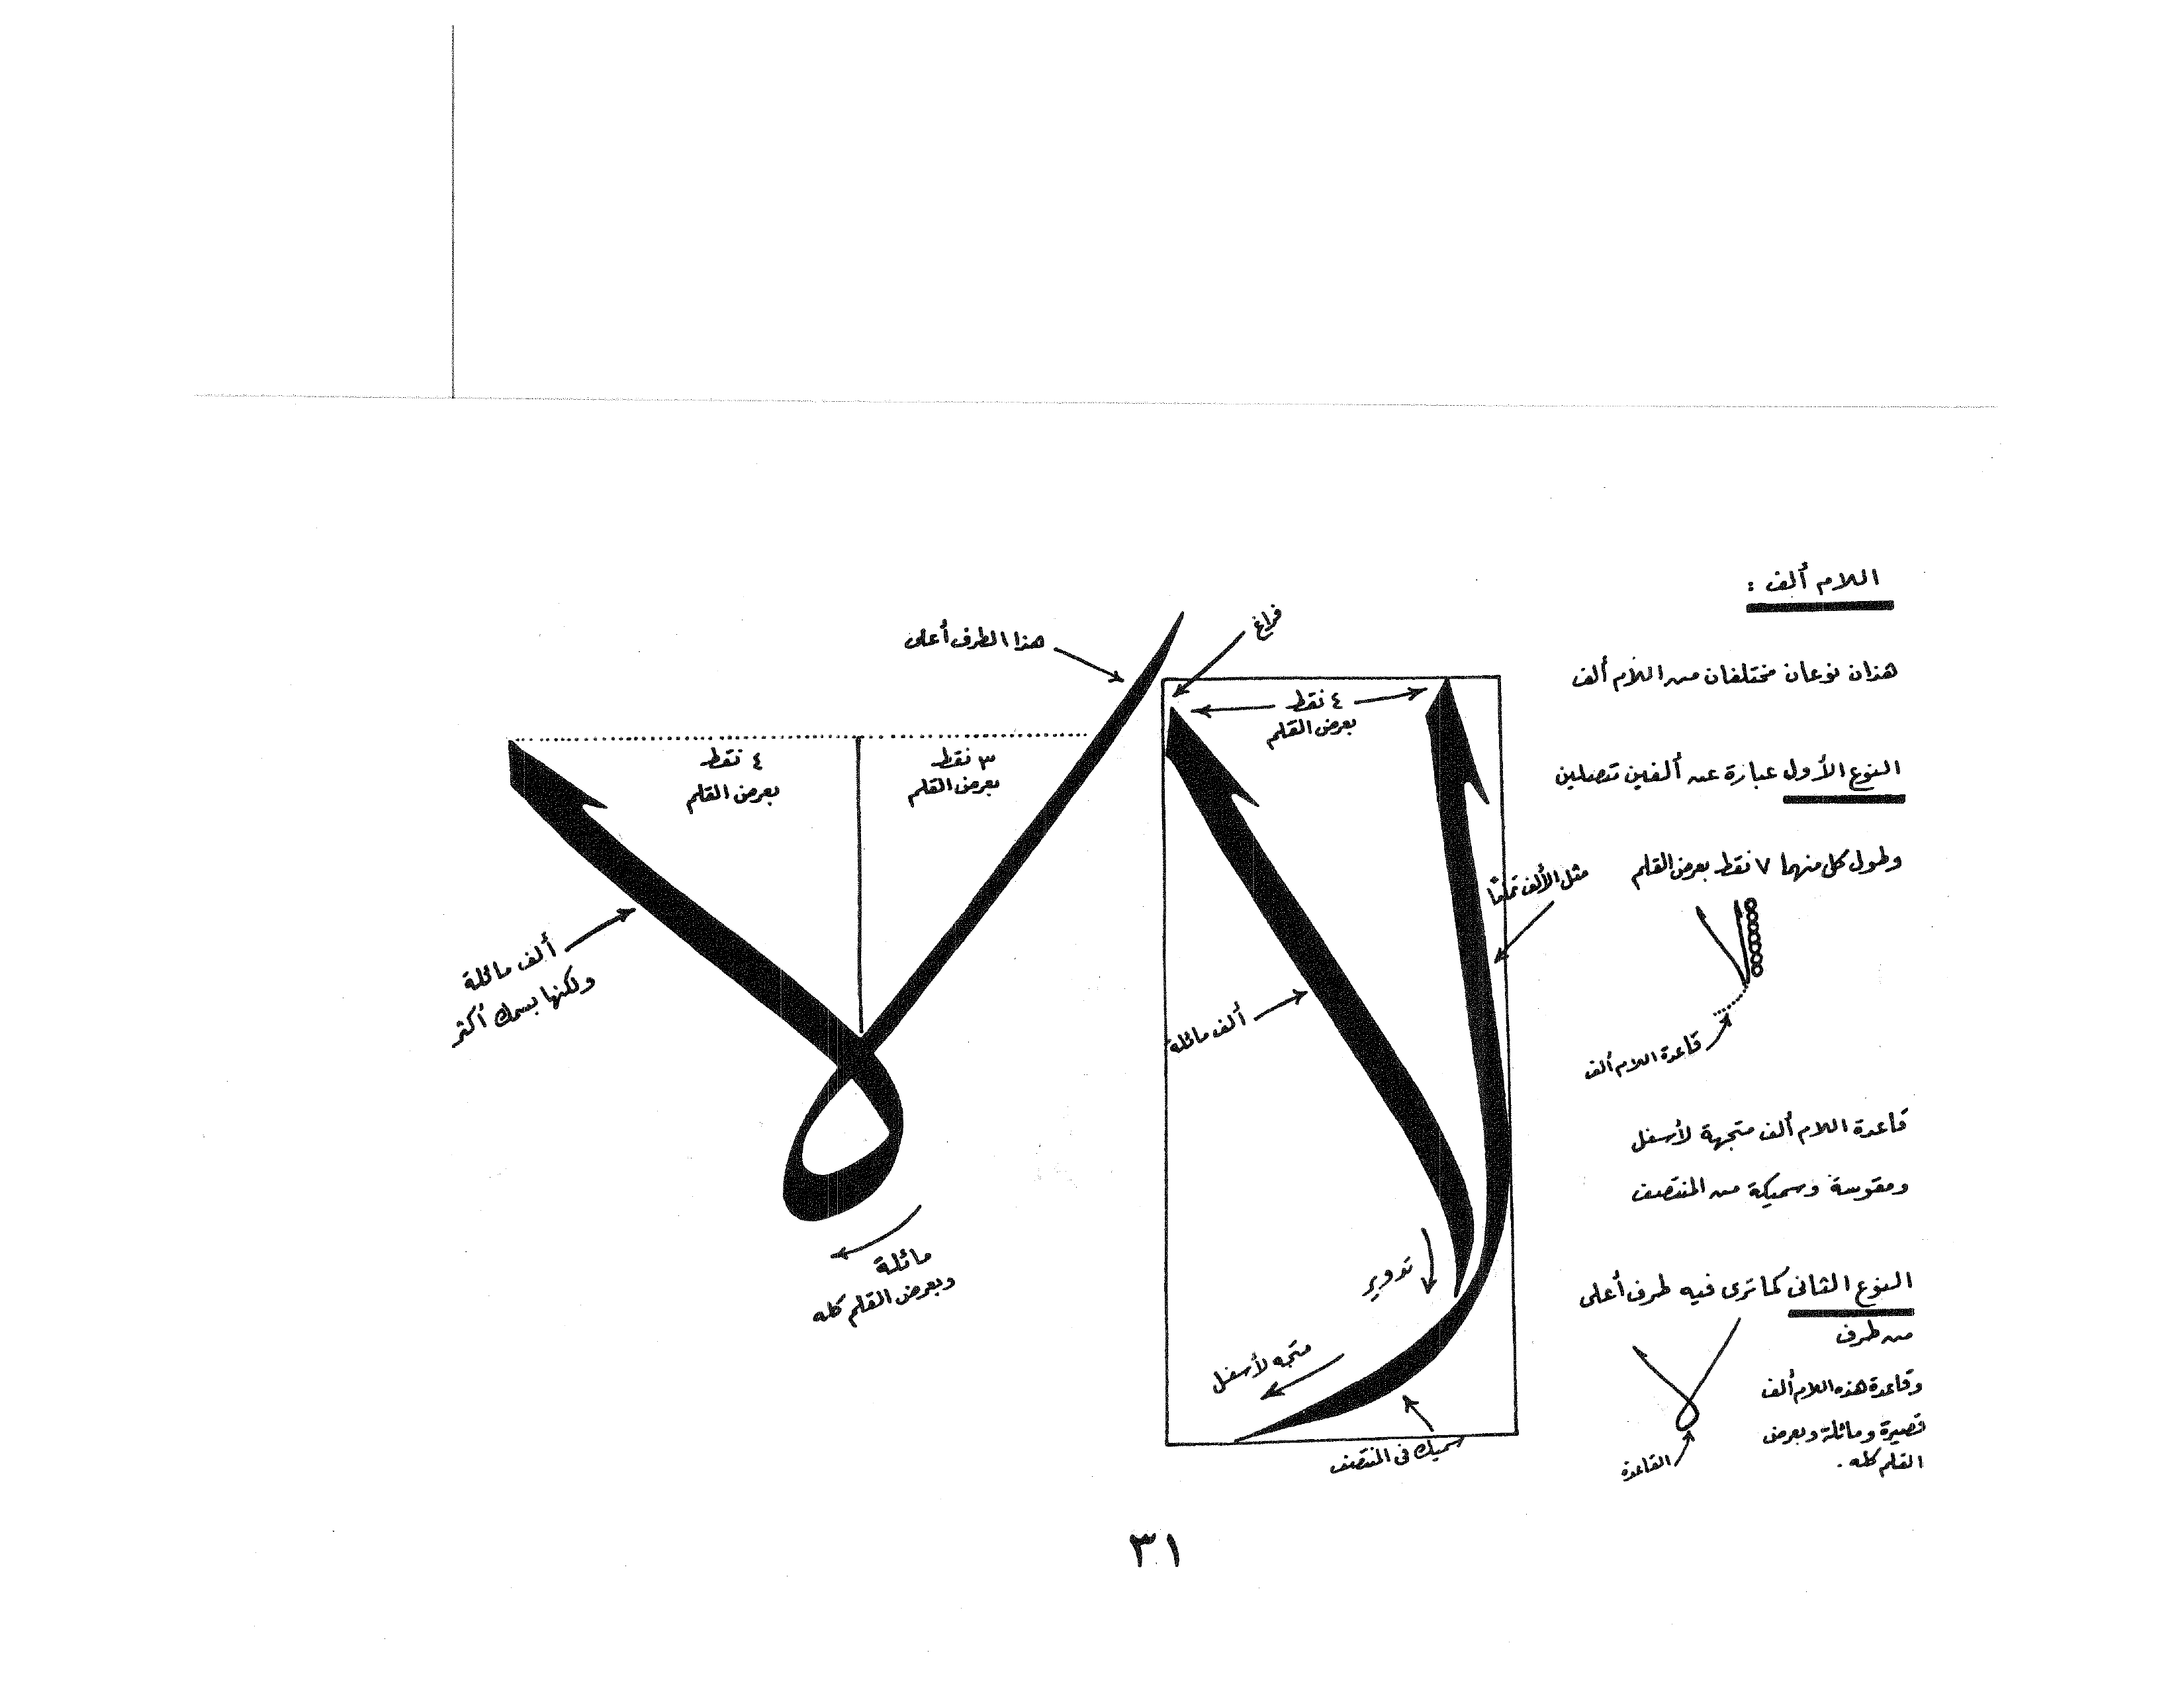 اللام ألف :
هذان نوعان مختلفان من اللام ألف
النوع الأول عبارة عن ألفين تتصلين
وطول كل منهما ٧ نقط بعرض القلم
قاعدة اللام ألف
قاعدة اللام ألف متجهة لأسفل
ومقوسة وسميكة من المنتصف
النوع الثانى كما ترى فيه طرف أعلى
من طرف
وقاعدة هذه اللام ألف
قصيرة ومائلة وبعرض
القلم كله .
القاعدة
فراغ
٤ نقط
بعرض القلم
مثل الألف تمامًا
ألف مائلة
تدوير
متجه لأسفل
سميك فى المنتصف
هذا الطرف أعلى
٣ نقط
بعرض القلم
٤ نقط
بعرض القلم
ألف مائلة
ولكنها بسمك أكثر
مائلة
وبعرض القلم كله
٣١